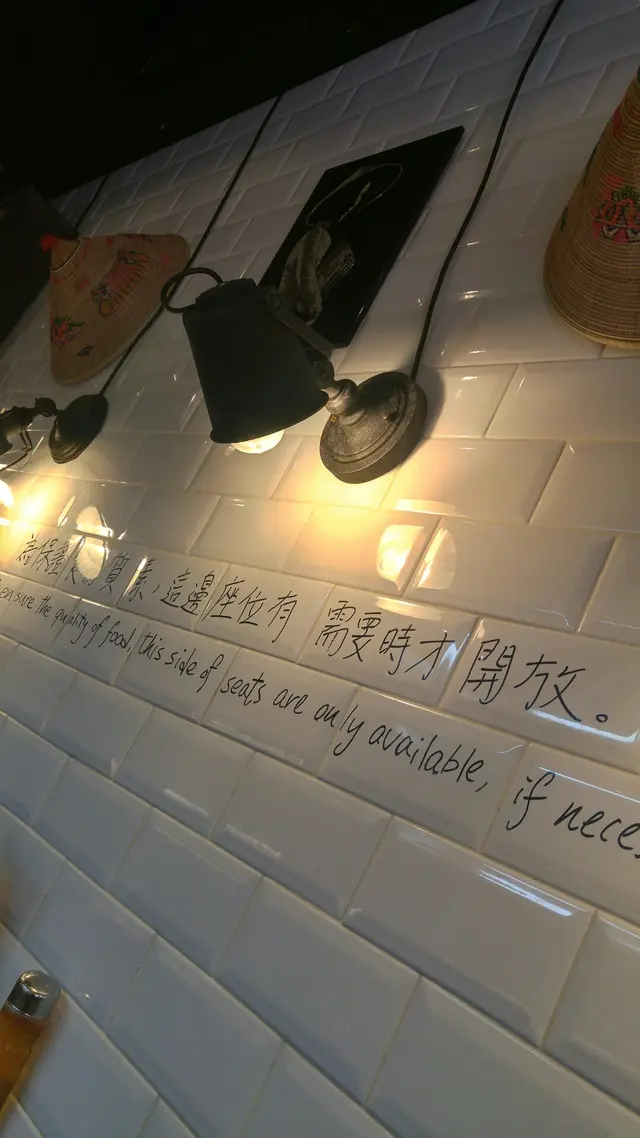 為保證食物質素，這邊座位有需要時才開放。
ensure the quality of food, this side of seats are only available, if neces